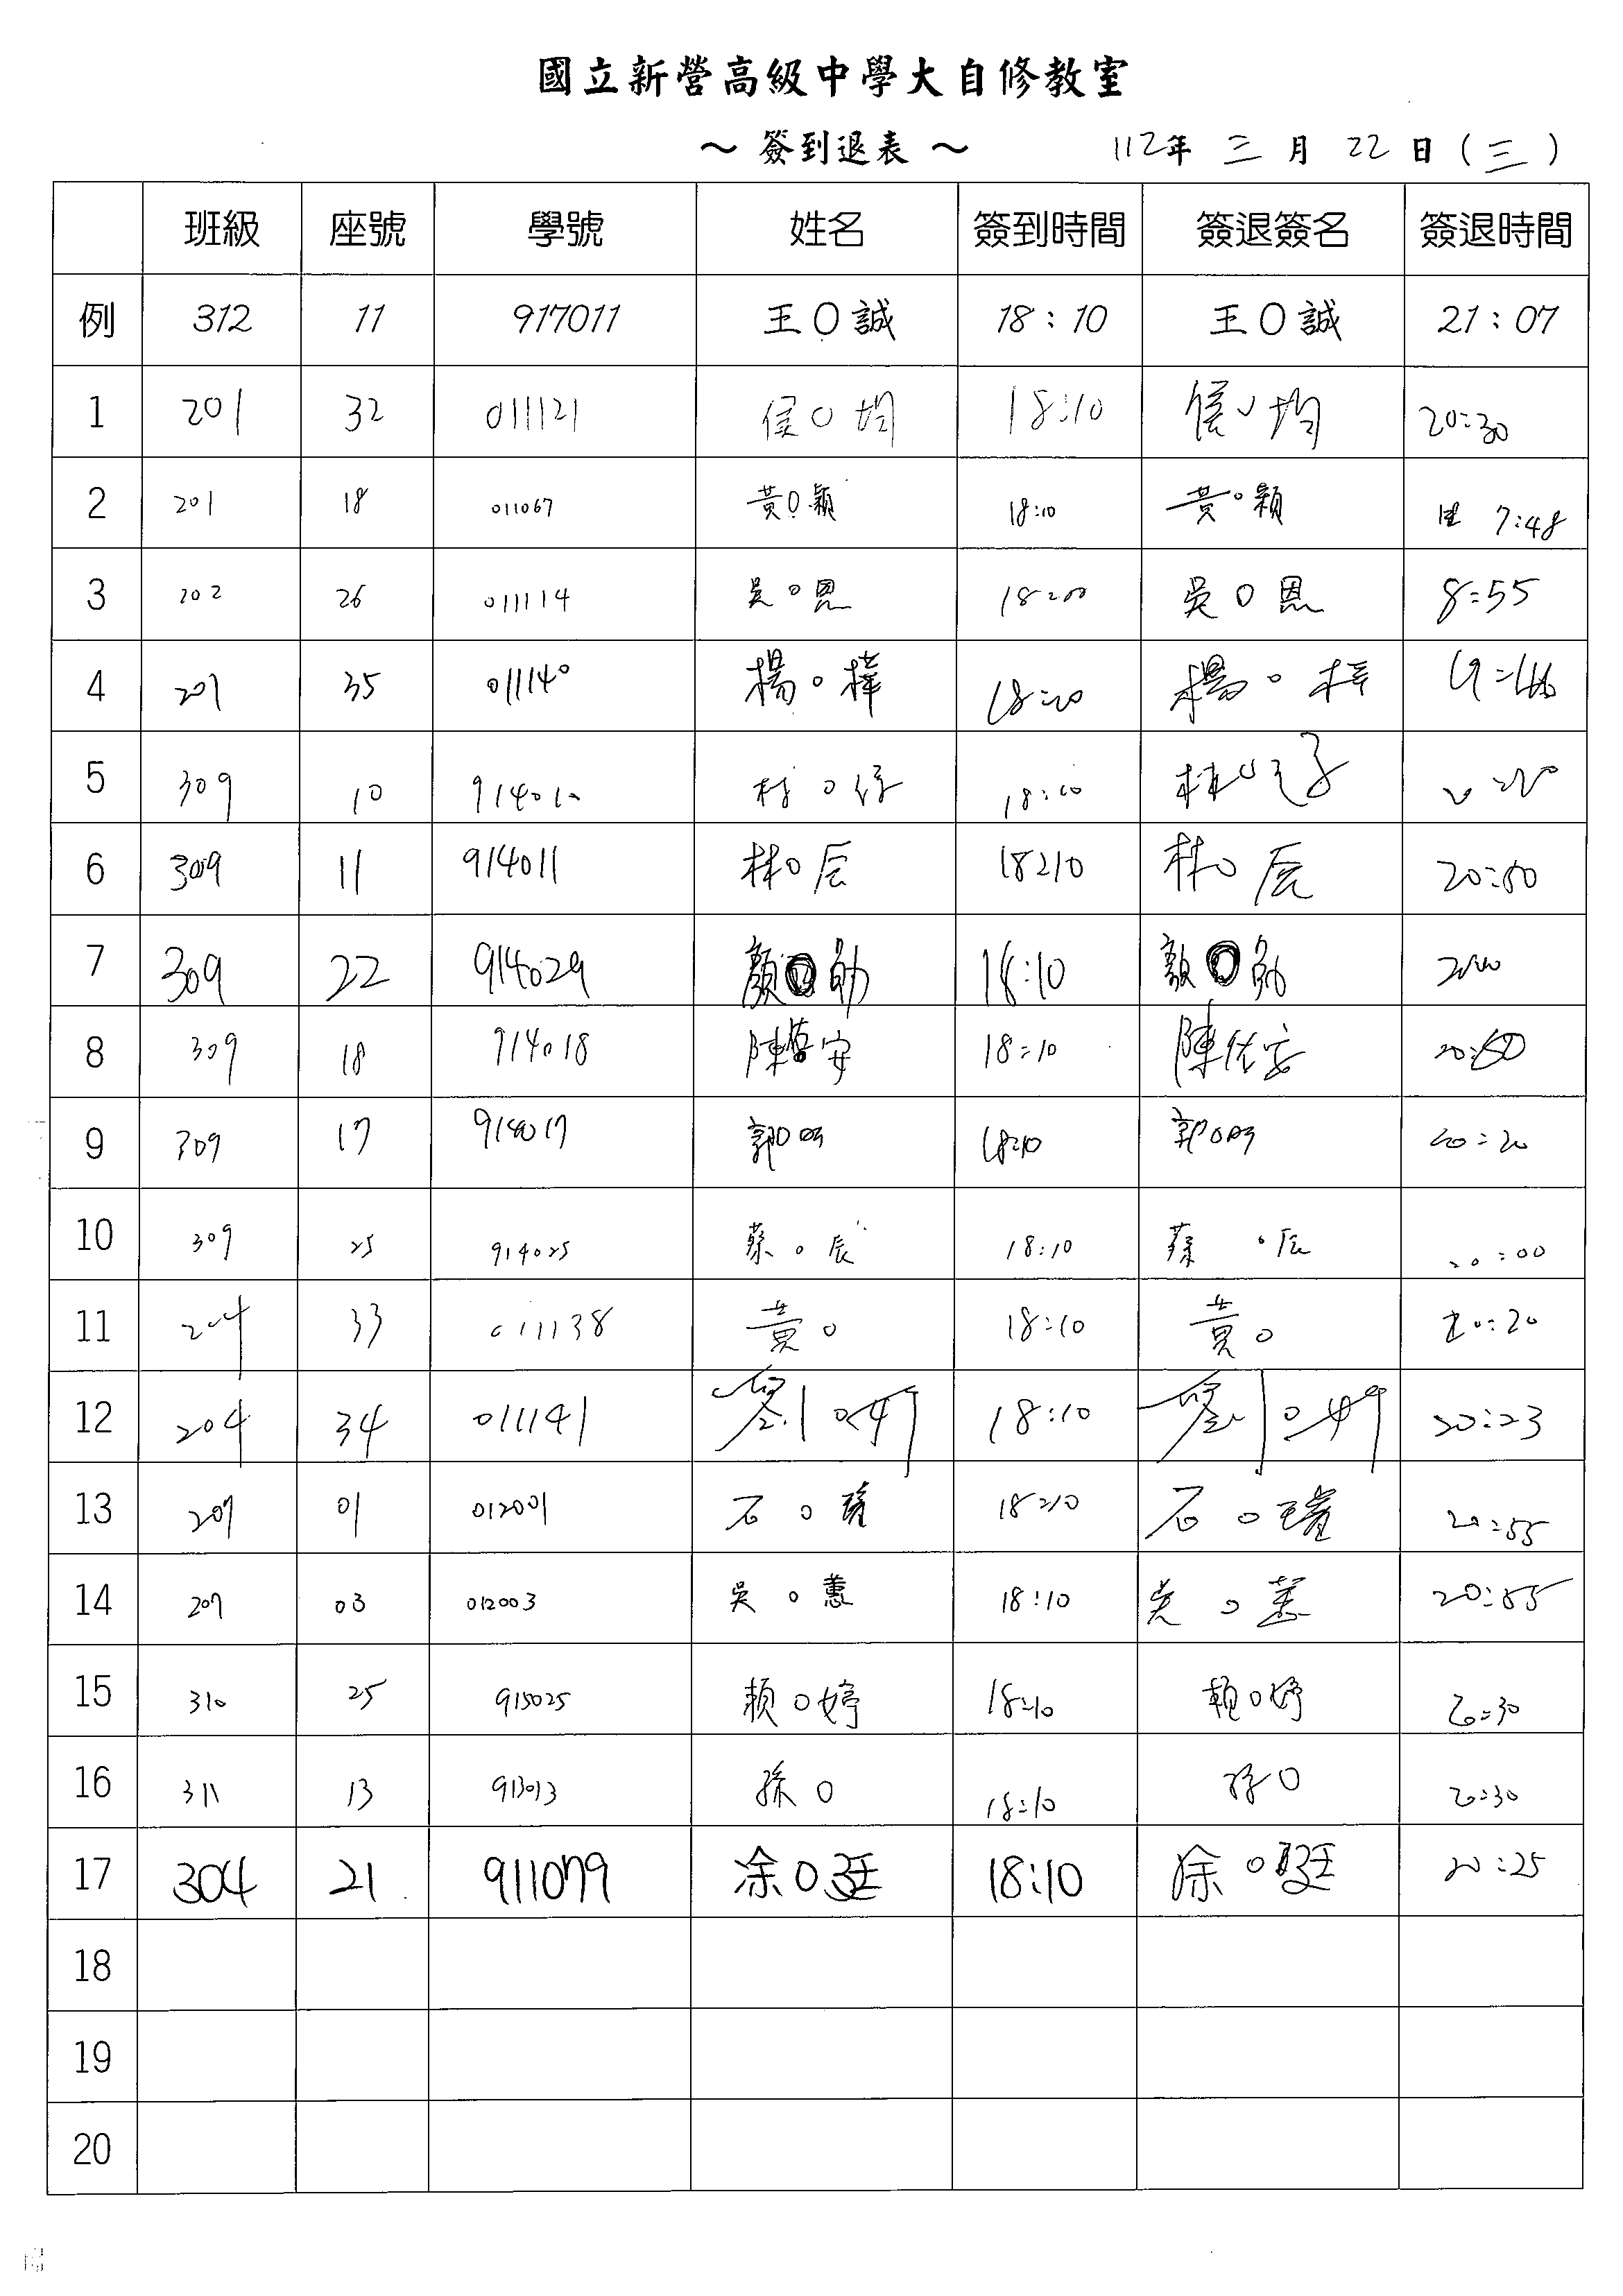 國立新營高級中學大自修教室
～ 簽到退表 ～ 112年 三 月 22 日 (三)
班級 座號 學號 姓名 簽到時間 簽退簽名 簽退時間
例 312 11 917011 王〇誠 18:10 王〇誠 21:07
1 201 32 011121 侯〇均 18:10 侯〇均 20:30
2 201 18 011067 黃〇穎 18:10 黃〇穎 7:48
3 202 26 011114 吳〇恩 18:00 吳〇恩 8:55
4 201 35 011140 楊〇樺 18:20 楊〇樺
5 309 10 914010 林〇 18:10 林〇
6 309 11 914011 林〇辰 18:10 林〇辰 20:50
7 309 22 914029 顏〇勛 18:10 顏〇勛
8 309 18 914018 陳 安 18:10 陳佑安 20:50
9 309 17 914017 郭〇明 18:10 郭〇明 20:20
10 309 25 914025 蔡〇辰 18:10 蔡〇辰 20:00
11 204 33 011138 黃〇 18:10 黃〇 20:20
12 204 34 011141 劉〇 18:10 劉〇 20:23
13 207 01 012001 石〇瑄 18:10 石〇瑄 20:55
14 207 03 012003 吳〇蕙 18:10 吳〇蕙 20:55
15 310 25 915025 賴〇婷 18:10 賴〇婷 20:30
16 311 13 913013 孫〇 18:10 孫〇 20:30
17 304 21 911079 涂〇廷 18:10 涂〇廷 20:25
18
19
20